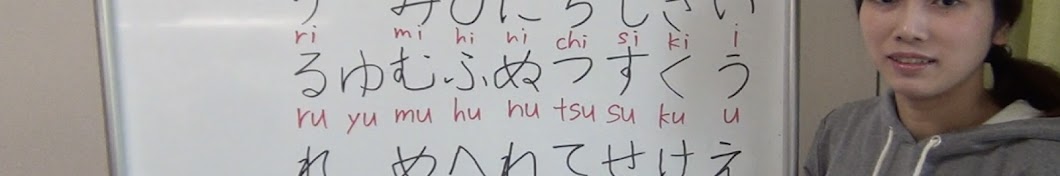 り みひにちしきい
ri mi hi ni chi si ki i
るゆむふぬつすくう
ru yu mu hu nu tsu su ku u
れ めへねてせけえ